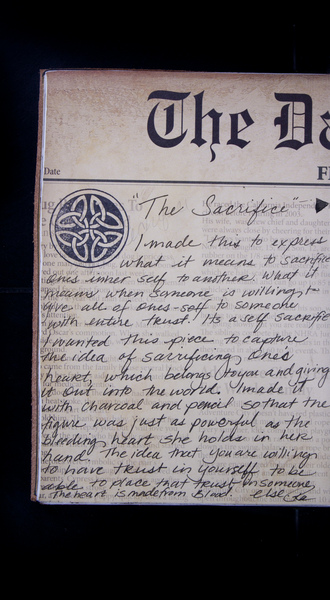 The Da
Date
FI
"The Sacrifice"
I made this to express
what it means to sacrifice
ones inner self to another. What it
means when someone is willing to
give all of ones-self to someone
with entire trust. Its a self sacrifice
I wanted this piece to capture
the idea of sacrificing one's
heart, which belongs to you and giving
it out into the world. I made it
with charcoal and pencil so that the
figure was just as powerful as the
bleeding heart she holds in her
hand. The idea that you are willing
to have trust in yourself to be
able to place that trust in someone
The heart is made from Blood. else